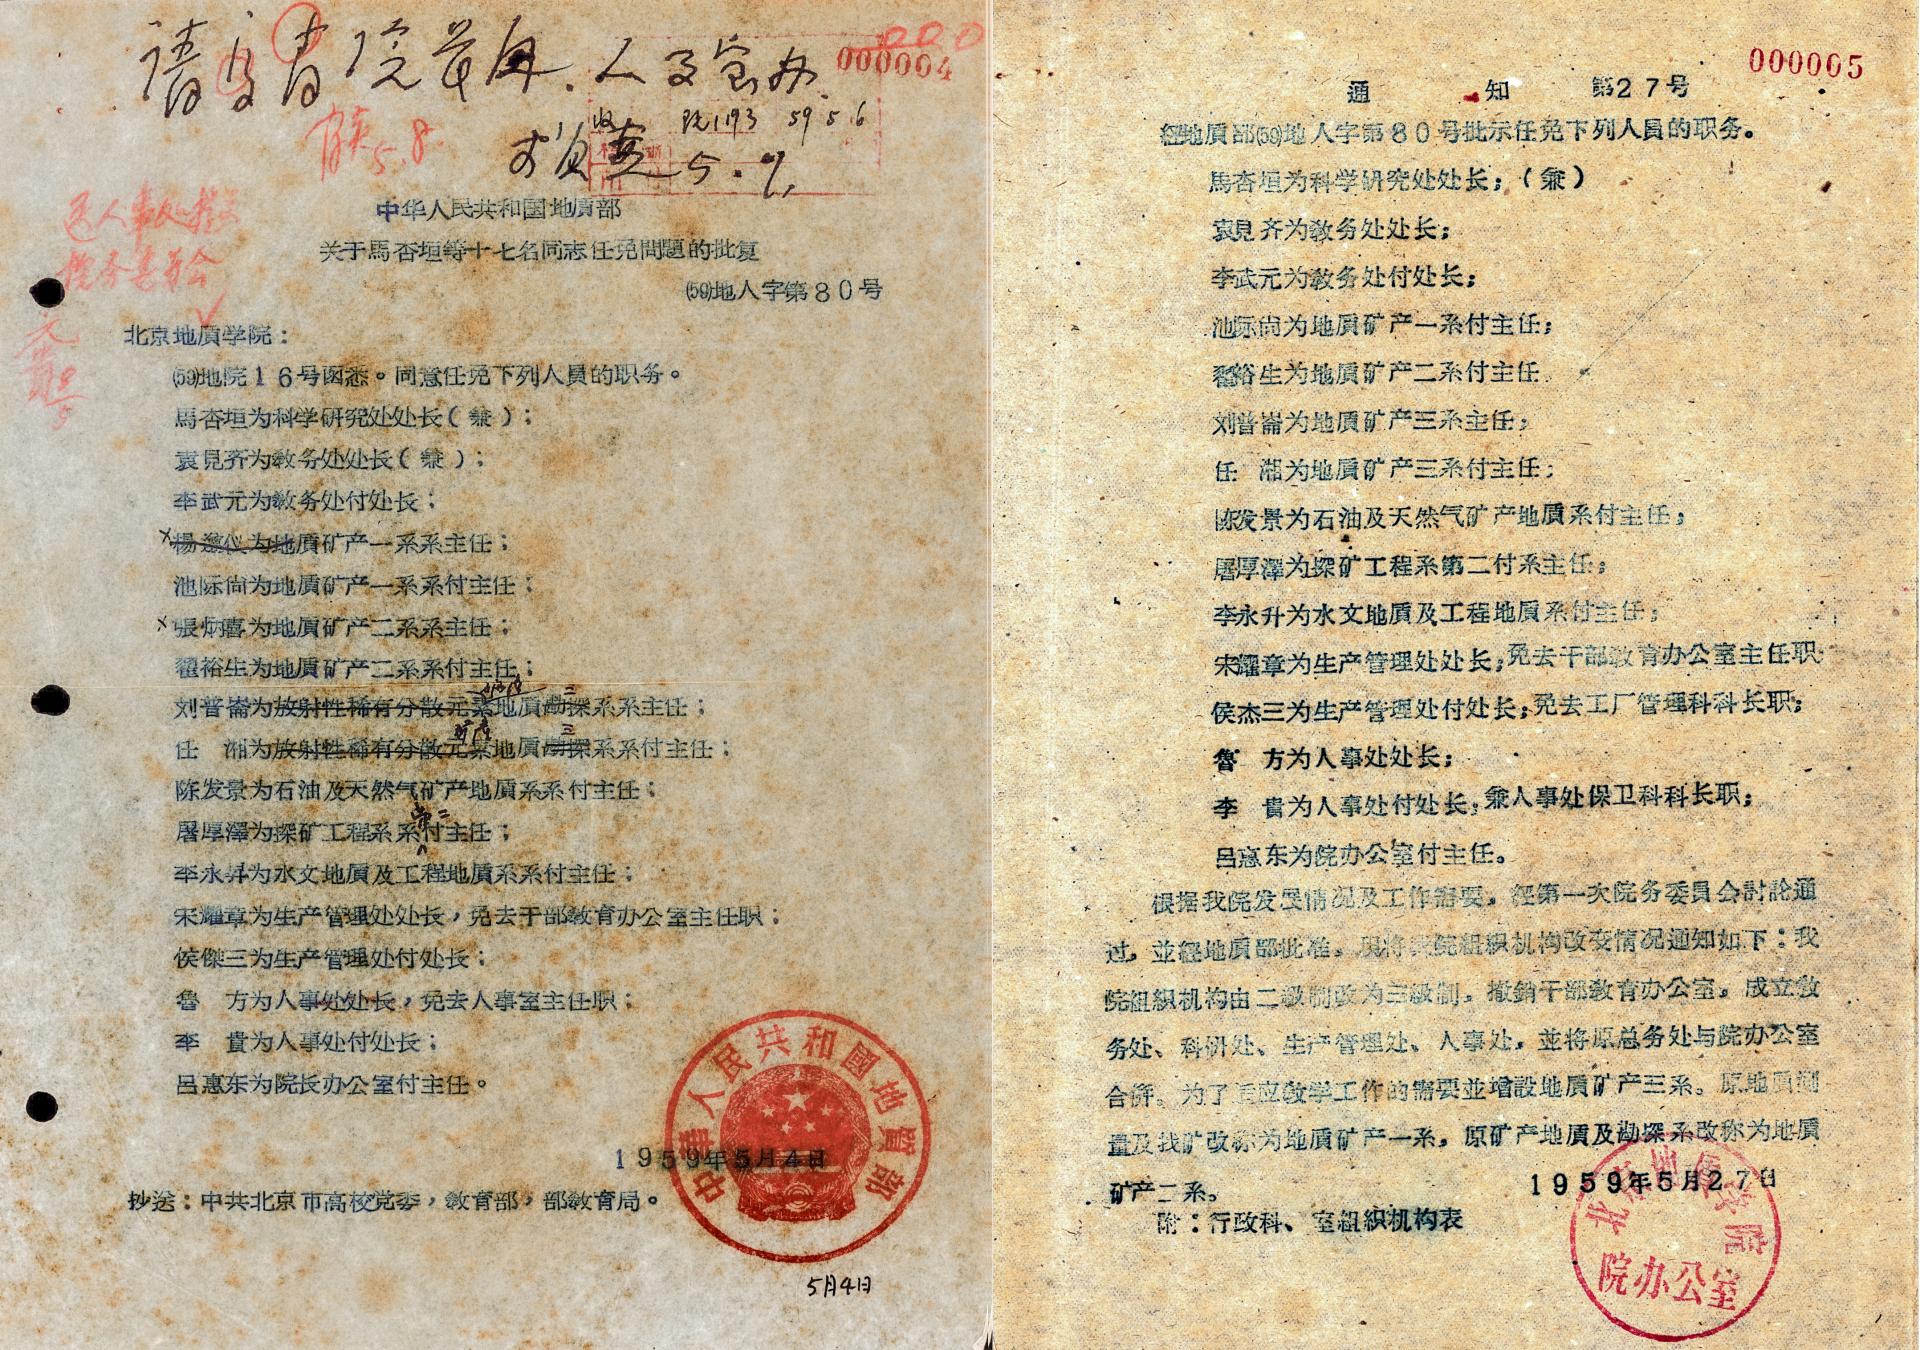 000004
收 院1193 59 5 6
5.8.
中华人民共和国地质部
关于馬杏垣等十七名同志任免問題的批复
(59)地人字第80号
北京地質学院：
(59)地院16号函悉。同意任免下列人員的职务。
馬杏垣为科学研究处处长（兼）；
袁見齐为教务处处长（兼）；
李武元为教务处付处长；
楊遵仪为地質矿产一系系主任；
池际尚为地質矿产一系系付主任；
張炳熹为地質矿产二系系主任；
翟裕生为地質矿产二系系付主任；
刘普崙为放射性稀有分散元素地質勘探系系主任；
矿产 三
任　湘为放射性稀有分散元素地質勘探系系付主任；
矿产 三
陈发景为石油及天然气矿产地质系系付主任；
屠厚澤为探矿工程系系付主任；
第二
李永昇为水文地質及工程地質系系付主任；
宋耀章为生产管理处处长，免去干部教育办公室主任职；
侯傑三为生产管理处付处长；
魯　方为人事处处长，免去人事室主任职；
李　貴为人事处付处长；
呂惠东为院长办公室付主任。
1959年5月4日
抄送：中共北京市高校党委，教育部，部教育局。
中華人民共和國地質部
5月4日
000005
通　知　第27号
經地質部(59)地人字第80号批示任免下列人員的职务。
馬杏垣为科学研究处处长；（兼）
袁見齐为教务处处长；
李武元为教务处付处长；
池际尚为地質矿产一系付主任；
翟裕生为地質矿产二系付主任
刘普崙为地質矿产三系主任；
任　湘为地質矿产三系付主任；
陈发景为石油及天然气矿产地质系付主任；
屠厚澤为探矿工程系第二付系主任；
李永升为水文地质及工程地质系付主任；
宋耀章为生产管理处处长；免去干部教育办公室主任职
侯杰三为生产管理处付处长；免去工厂管理科科长职；
魯　方为人事处处长；
李　貴为人事处付处长；兼人事处保卫科科长职；
呂惠东为院办公室付主任。
根据我院发展情况及工作需要，經第一次院务委員会討論通
过，並經地质部批准，現将我院組织机构改变情况通知如下：我
院組织机构由二級制改为三級制，撤銷干部教育办公室。成立教
务处、科研处、生产管理处、人事处，並将原总务处与院办公室
合併。为了适应教学工作的需要並增設地质矿产三系。原地质測
量及找矿改称为地质矿产一系，原矿产地质及勘探系改称为地质
矿产二系。
1959年5月27日
附：行政科、室組织机构表
北京地質学院
院办公室